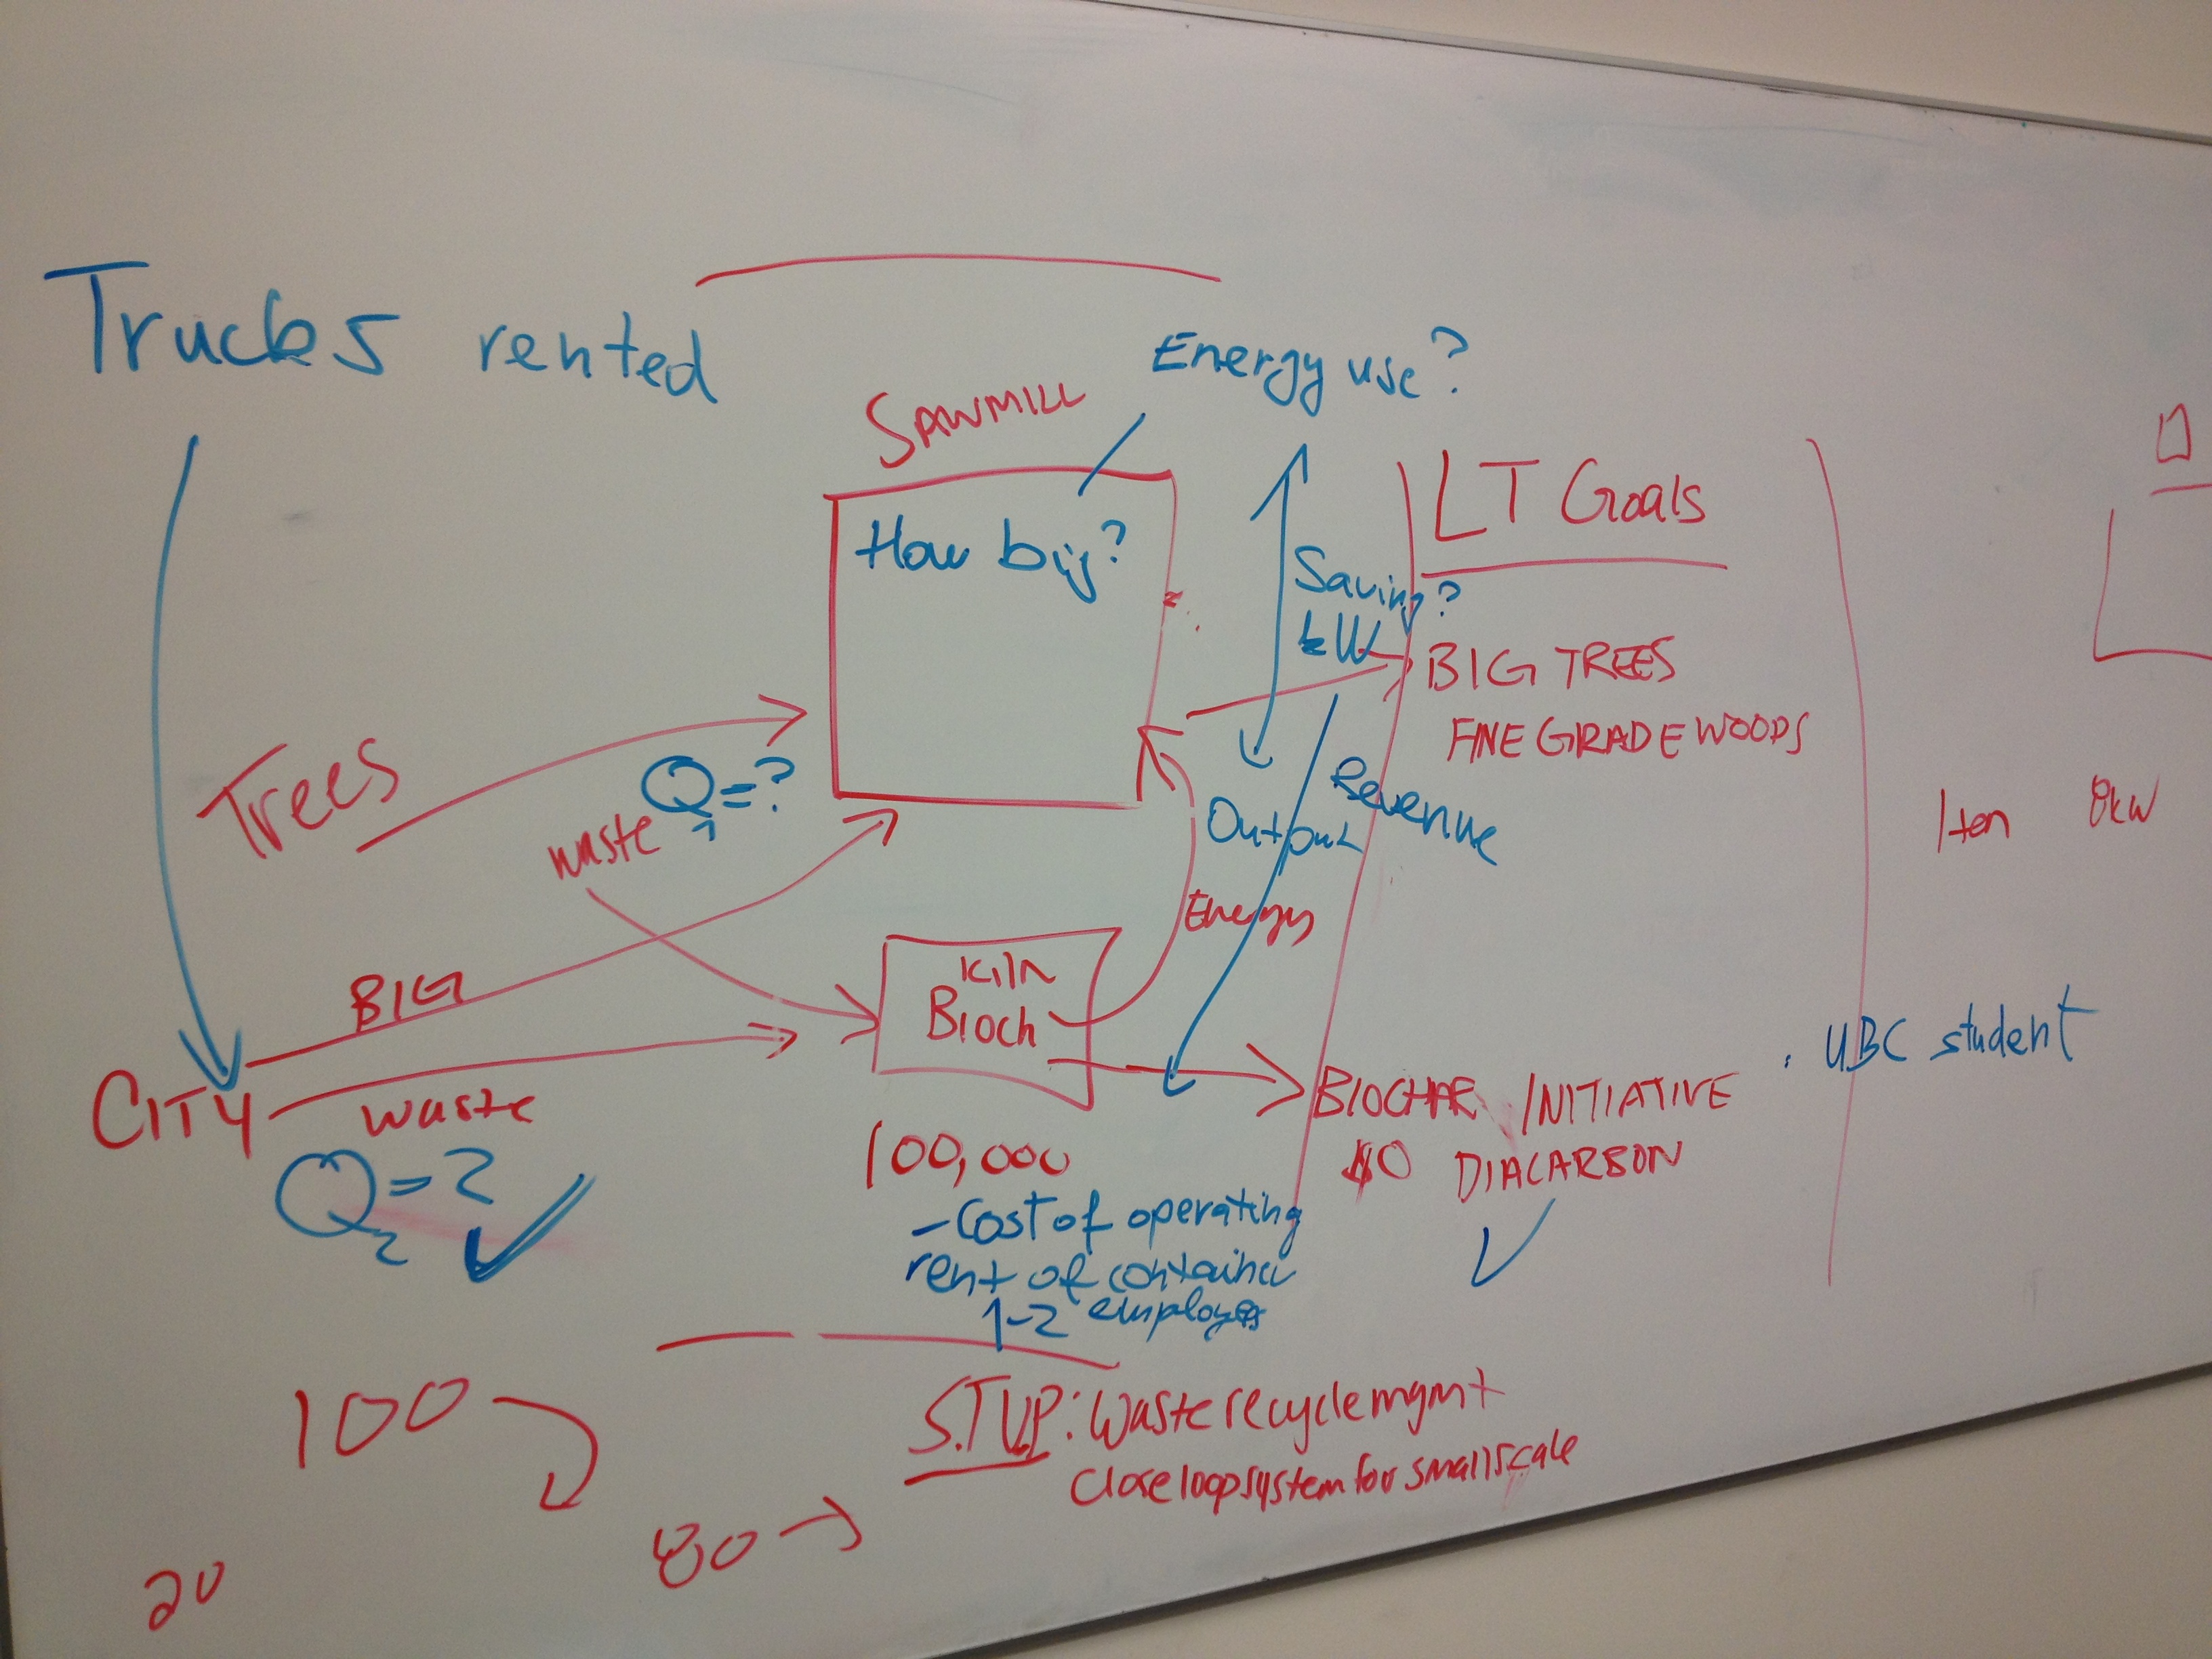 Trucks rented
Energy use?
SAWMILL
How big?
LT Goals
Saving?
kW
BIG TREES
FINE GRADE WOODS
Trees
waste
Q1=?
Output
Revenue
1ton 8kW
Energy
BIG
Kiln
Bioch
CITY
waste
Q2=?
100,000
BIOCHAR INITIATIVE
DIACARBON
. UBC student
- Cost of operating
rent of container
1-2 employees
100
S.T.V.P: Waste recycle mgmt
Close loop system for small scale
80
20